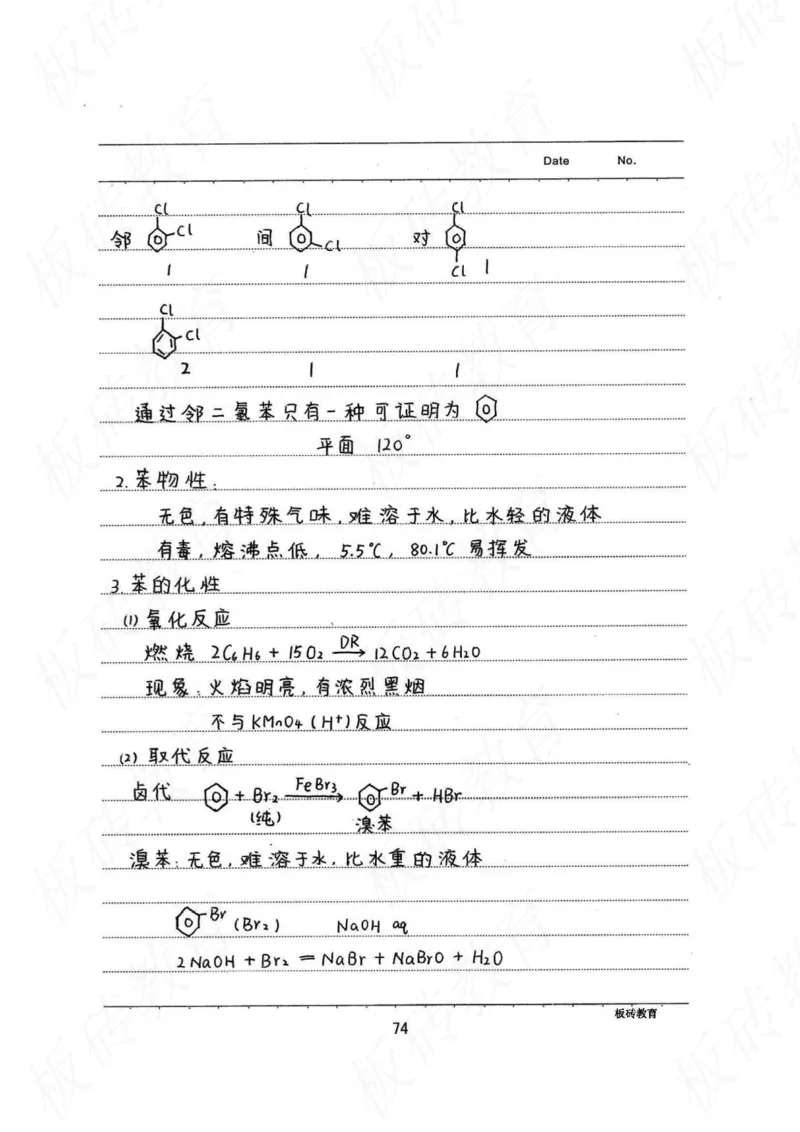 Date No.
Cl Cl Cl
邻 Cl 间 Cl 对
1 1 Cl 1
Cl
Cl
2 1 1
通过邻二氯苯只有一种可证明为
平面 120°
2.苯物性:
无色,有特殊气味,难溶于水,比水轻的液体
有毒,熔沸点低, 5.5℃, 80.1℃ 易挥发
3.苯的化性
(1)氧化反应
燃烧 2C6H6 + 15O2 DR→ 12CO2 + 6H2O
现象:火焰明亮,有浓烈黑烟
不与KMnO4(H+)反应
(2)取代反应
卤代 + Br2 FeBr3→ Br + HBr
(纯) 溴苯
溴苯:无色,难溶于水,比水重的液体
Br (Br2) NaOH aq
2NaOH + Br2 = NaBr + NaBrO + H2O
板砖教育
74